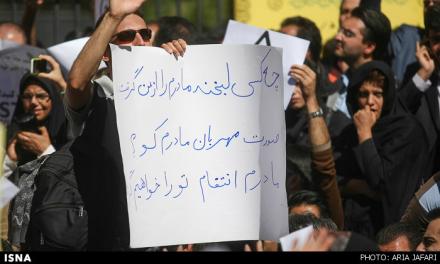 چه کسی لبخند مادرم را از من گرفت
صورت مهربان مادرم کو؟
مادرم انتقام تو را خواهیم گرفت
ISNA
PHOTO: ARIA JAFARI